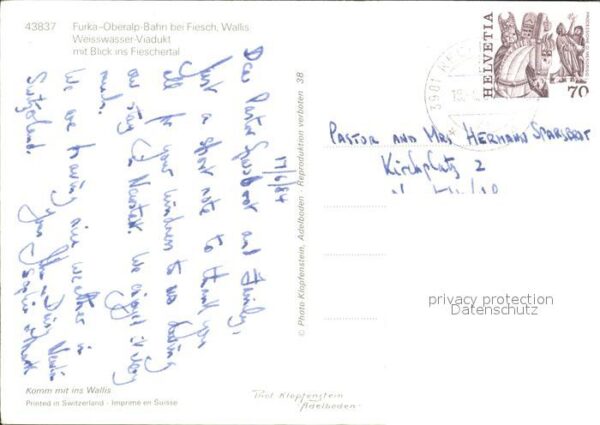 43837 Furka-Oberalp-Bahn bei Fiesch, Wallis
Weisswasser-Viadukt
mit Blick ins Fieschertal
17/6/84
Dear Pastor and Family,
Just a short note to thank you
all for your kindness to us during
our stay in We enjoyed it very
much.
We are having nice weather in
Switzerland.
Komm mit ins Wallis
Printed in Switzerland - Imprimé en Suisse
© Photo Klopfenstein, Adelboden - Reproduktion verboten 38
Phot Klopfenstein
Adelboden
HELVETIA
70
PASTOR AND MRS HERMANN
Kirchplatz 2
privacy protection
Datenschutz